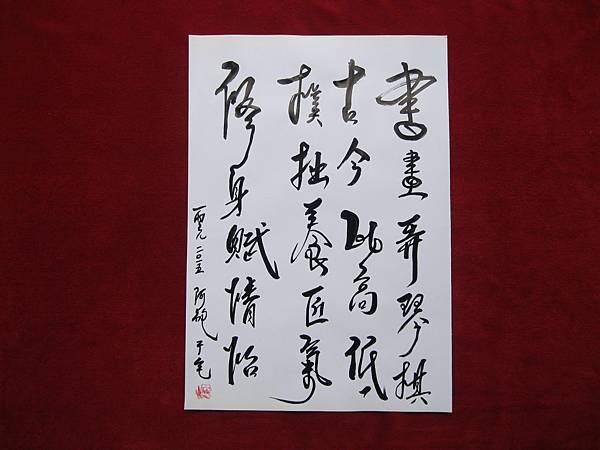 書畫弄琴棋
古今高低
樸拙養匠氣
修身賦情怡
西元二〇一五 阿